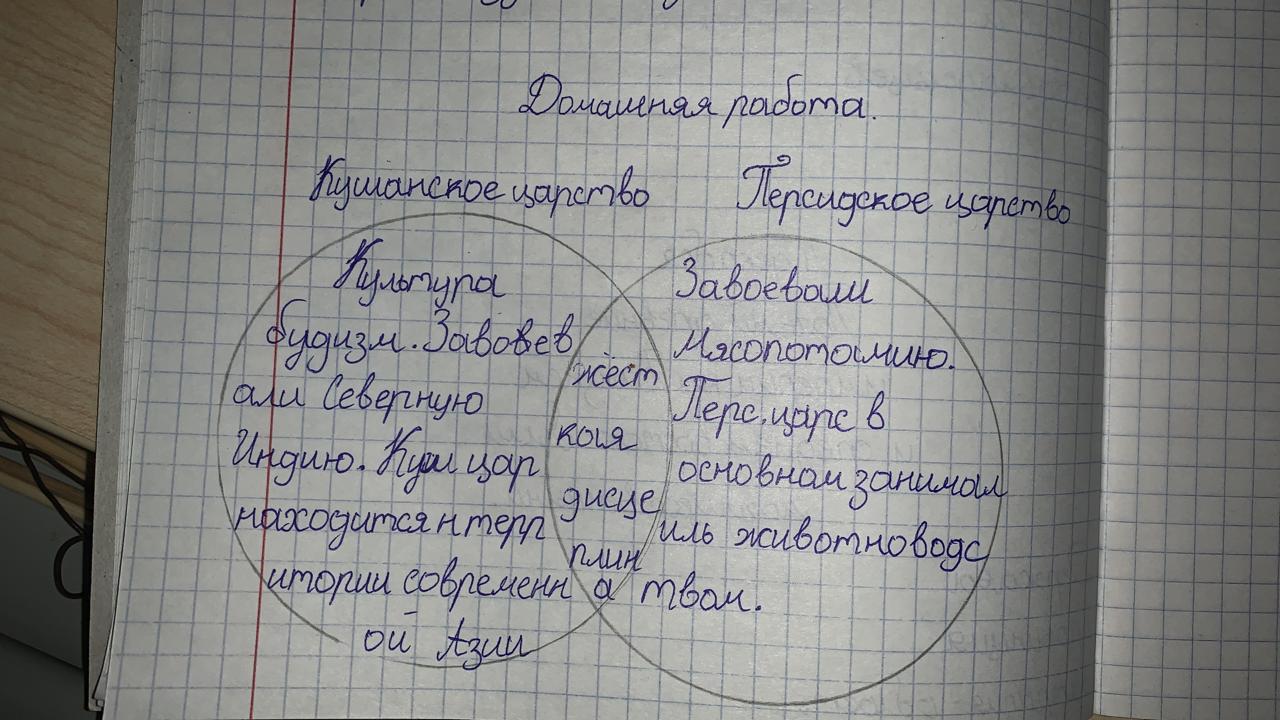 Домашняя работа.
Кушанское царство
Культура
будизм. Завовев
али Северную
Индию. Куш цар
находится н терр
итории современн
ой Азии
жёст
кая
дисце
плин
а
Персидское царство
Завоевали
Мясопотамию.
Перс. царс в
основном занимал
иль животноводс
твом.